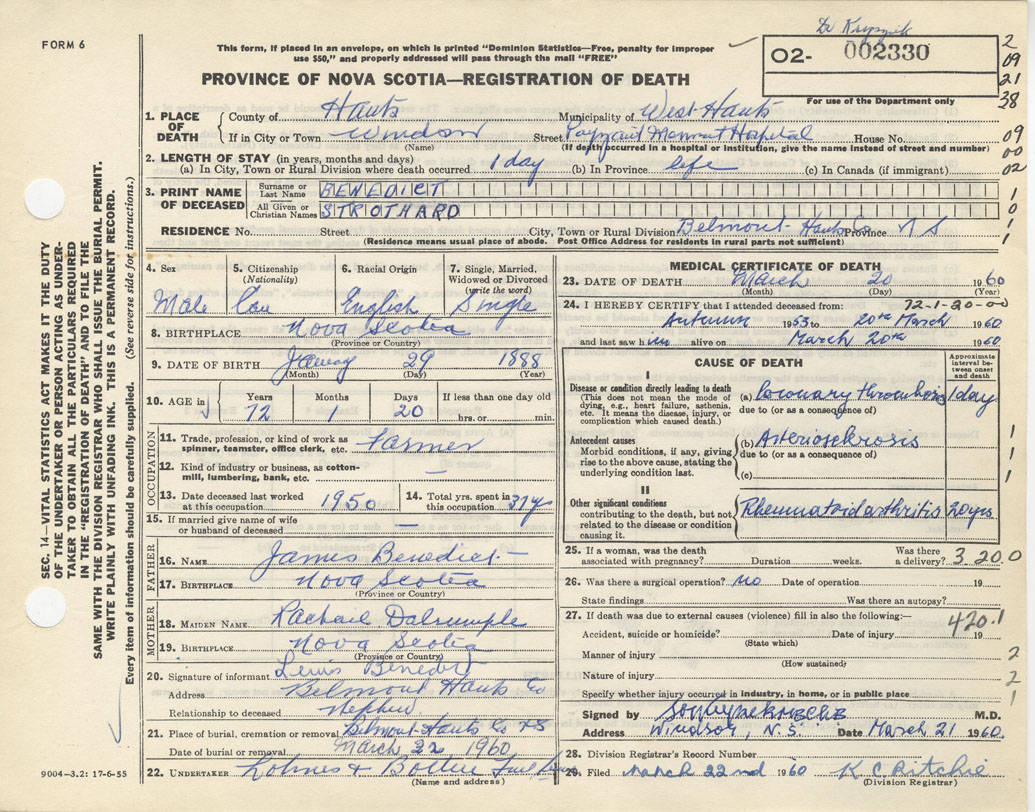 FORM 6
This form, if placed in an envelope, on which is printed "Dominion Statistics—Free, penalty for improper
use $50," and properly addressed will pass through the mail "FREE"
PROVINCE OF NOVA SCOTIA—REGISTRATION OF DEATH
O2- 002330
For use of the Department only
2
09
21
38
1. PLACE OF DEATH
County of Hants Municipality of West Hants
If in City or Town Windsor Street Payzant Hospital House No.
(Name) (If death occurred in a hospital or institution, give the name instead of street and number)
09
00
02
2. LENGTH OF STAY (in years, months and days)
(a) In City, Town or Rural Division where death occurred 1 day (b) In Province life (c) In Canada (if immigrant)
3. PRINT NAME OF DECEASED
Surname or Last Name BENEDICT
All Given or Christian Names STROTHARD
1
0
1
1
RESIDENCE No. Street City, Town or Rural Division Belmont - Hants Co Province N S
(Residence means usual place of abode. Post Office Address for residents in rural parts not sufficient)
4. Sex Male
5. Citizenship (Nationality) Can
6. Racial Origin English
7. Single, Married, Widowed or Divorced (write the word) Single
8. BIRTHPLACE Nova Scotia
(Province or Country)
9. DATE OF BIRTH 29 1888
(Month) (Day) (Year)
10. AGE in Years 72 Months 1 Days 20 If less than one day old hrs. or min.
OCCUPATION
11. Trade, profession, or kind of work as spinner, teamster, office clerk, etc. Farmer
12. Kind of industry or business, as cotton-mill, lumbering, bank, etc. —
13. Date deceased last worked at this occupation 1950
14. Total yrs. spent in this occupation 37 yrs
15. If married give name of wife or husband of deceased —
FATHER
16. NAME James Benedict
17. BIRTHPLACE Nova Scotia
(Province or Country)
MOTHER
18. MAIDEN NAME Rachael Dalrumple
19. BIRTHPLACE Nova Scotia
(Province or Country)
20. Signature of informant Lewis Benedict
Address Belmont Hants Co
Relationship to deceased Nephew
21. Place of burial, cremation or removal Belmont Hants Co NS
Date of burial or removal March 22 1960
22. UNDERTAKER
(Name and address)
MEDICAL CERTIFICATE OF DEATH
23. DATE OF DEATH March 20 1960
(Month) (Day) (Year)
24. I HEREBY CERTIFY that I attended deceased from: 72-1-20-00
Autumn 1953 to 20th March 1960
and last saw him alive on March 20th 1960
CAUSE OF DEATH
Approximate interval between onset and death
I
Disease or condition directly leading to death
(This does not mean the mode of dying, e.g., heart failure, asthenia, etc. It means the disease, injury, or complication which caused death.)
(a) Coronary thrombosis 1 day
due to (or as a consequence of)
Antecedent causes
Morbid conditions, if any, giving rise to the above cause, stating the underlying condition last.
(b) Arteriosclerosis
due to (or as a consequence of)
(c)
1
1
1
II
Other significant conditions
contributing to the death, but not related to the disease or condition causing it.
Rheumatoid arthritis 20 yrs
25. If a woman, was the death associated with pregnancy? Duration weeks. Was there a delivery? 3.200
26. Was there a surgical operation? no Date of operation 19
State findings Was there an autopsy?
27. If death was due to external causes (violence) fill in also the following:— 420.1
Accident, suicide or homicide? Date of injury 19
(State which)
Manner of injury 2
(How sustained)
Nature of injury 2
Specify whether injury occurred in industry, in home, or in public place 1
Signed by M.D.
Address Windsor, N.S. Date March 21 1960.
28. Division Registrar's Record Number
29. Filed March 22nd 1960 K C Ritchie
(Division Registrar)
SEC. 14—VITAL STATISTICS ACT MAKES IT THE DUTY
OF THE UNDERTAKER OR PERSON ACTING AS UNDER-
TAKER TO OBTAIN ALL THE PARTICULARS REQUIRED
IN THE "REGISTRATION OF DEATH" AND TO FILE THE
SAME WITH THE DIVISION REGISTRAR WHO SHALL ISSUE THE BURIAL PERMIT.
WRITE PLAINLY WITH UNFADING INK. THIS IS A PERMANENT RECORD.
Every item of information should be carefully supplied. (See reverse side for instructions.)
9004-3.2: 17-6-55